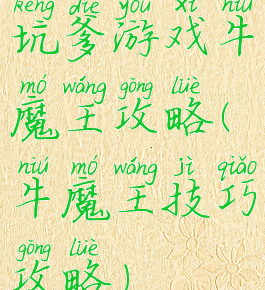 kēng diē yóu xì niú
坑爹游戏牛
mó wáng gōng lüè
魔王攻略(
niú mó wáng jì qiǎo
牛魔王技巧
gōng lüè
攻略)